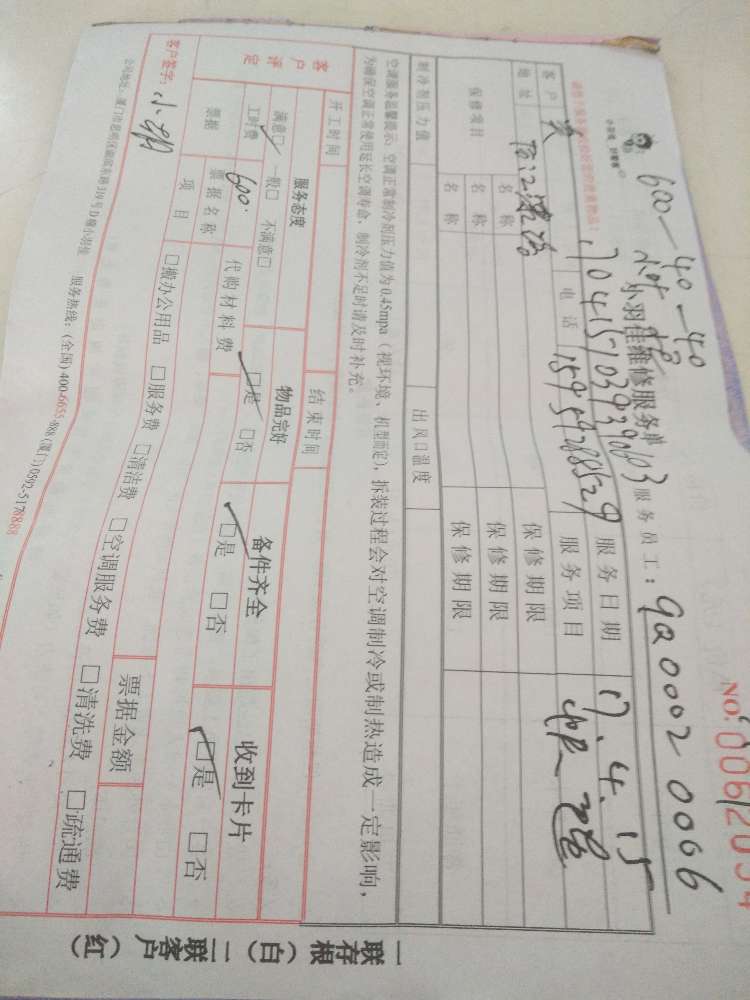 600-40-40
NO.
小羽佳维修服务单
服务员工：9a0002 0066
704151039390603
客户
电话
15959268529
服务日期
17.4.15
地址
服务项目
保修项目
名称
保修期限
名称
保修期限
名称
保修期限
制冷剂压力值
出风口温度
空调服务温馨提示：空调正常制冷剂压力值为0.45mpa（视环境、机型而定），拆装过程会对空调制冷或制热造成一定影响，
为确保空调正常使用延长空调寿命、制冷剂不足时请及时补充。
开工时间
结束时间
客户评定
服务态度
物品完好
备件齐全
收到卡片
满意□ 一般□ 不满意□
□是 □否
□是 □否
□是 □否
工时费
600.
代购材料费
票据
票据名称
票据金额
项目
□搬办公用品 □服务费 □清洁费 □空调服务费 □清洗费 □疏通费
客户签字：
服务热线：(全国)400-6655-888 (厦门)0592-5178888
一联存根（白）二联客户（红）